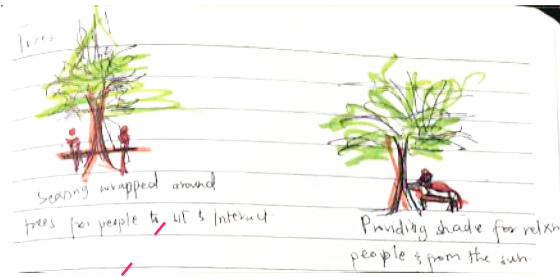 Trees
Seating wrapped around
trees for people to sit & interact
Providing shade for relxn
people & from the sun.